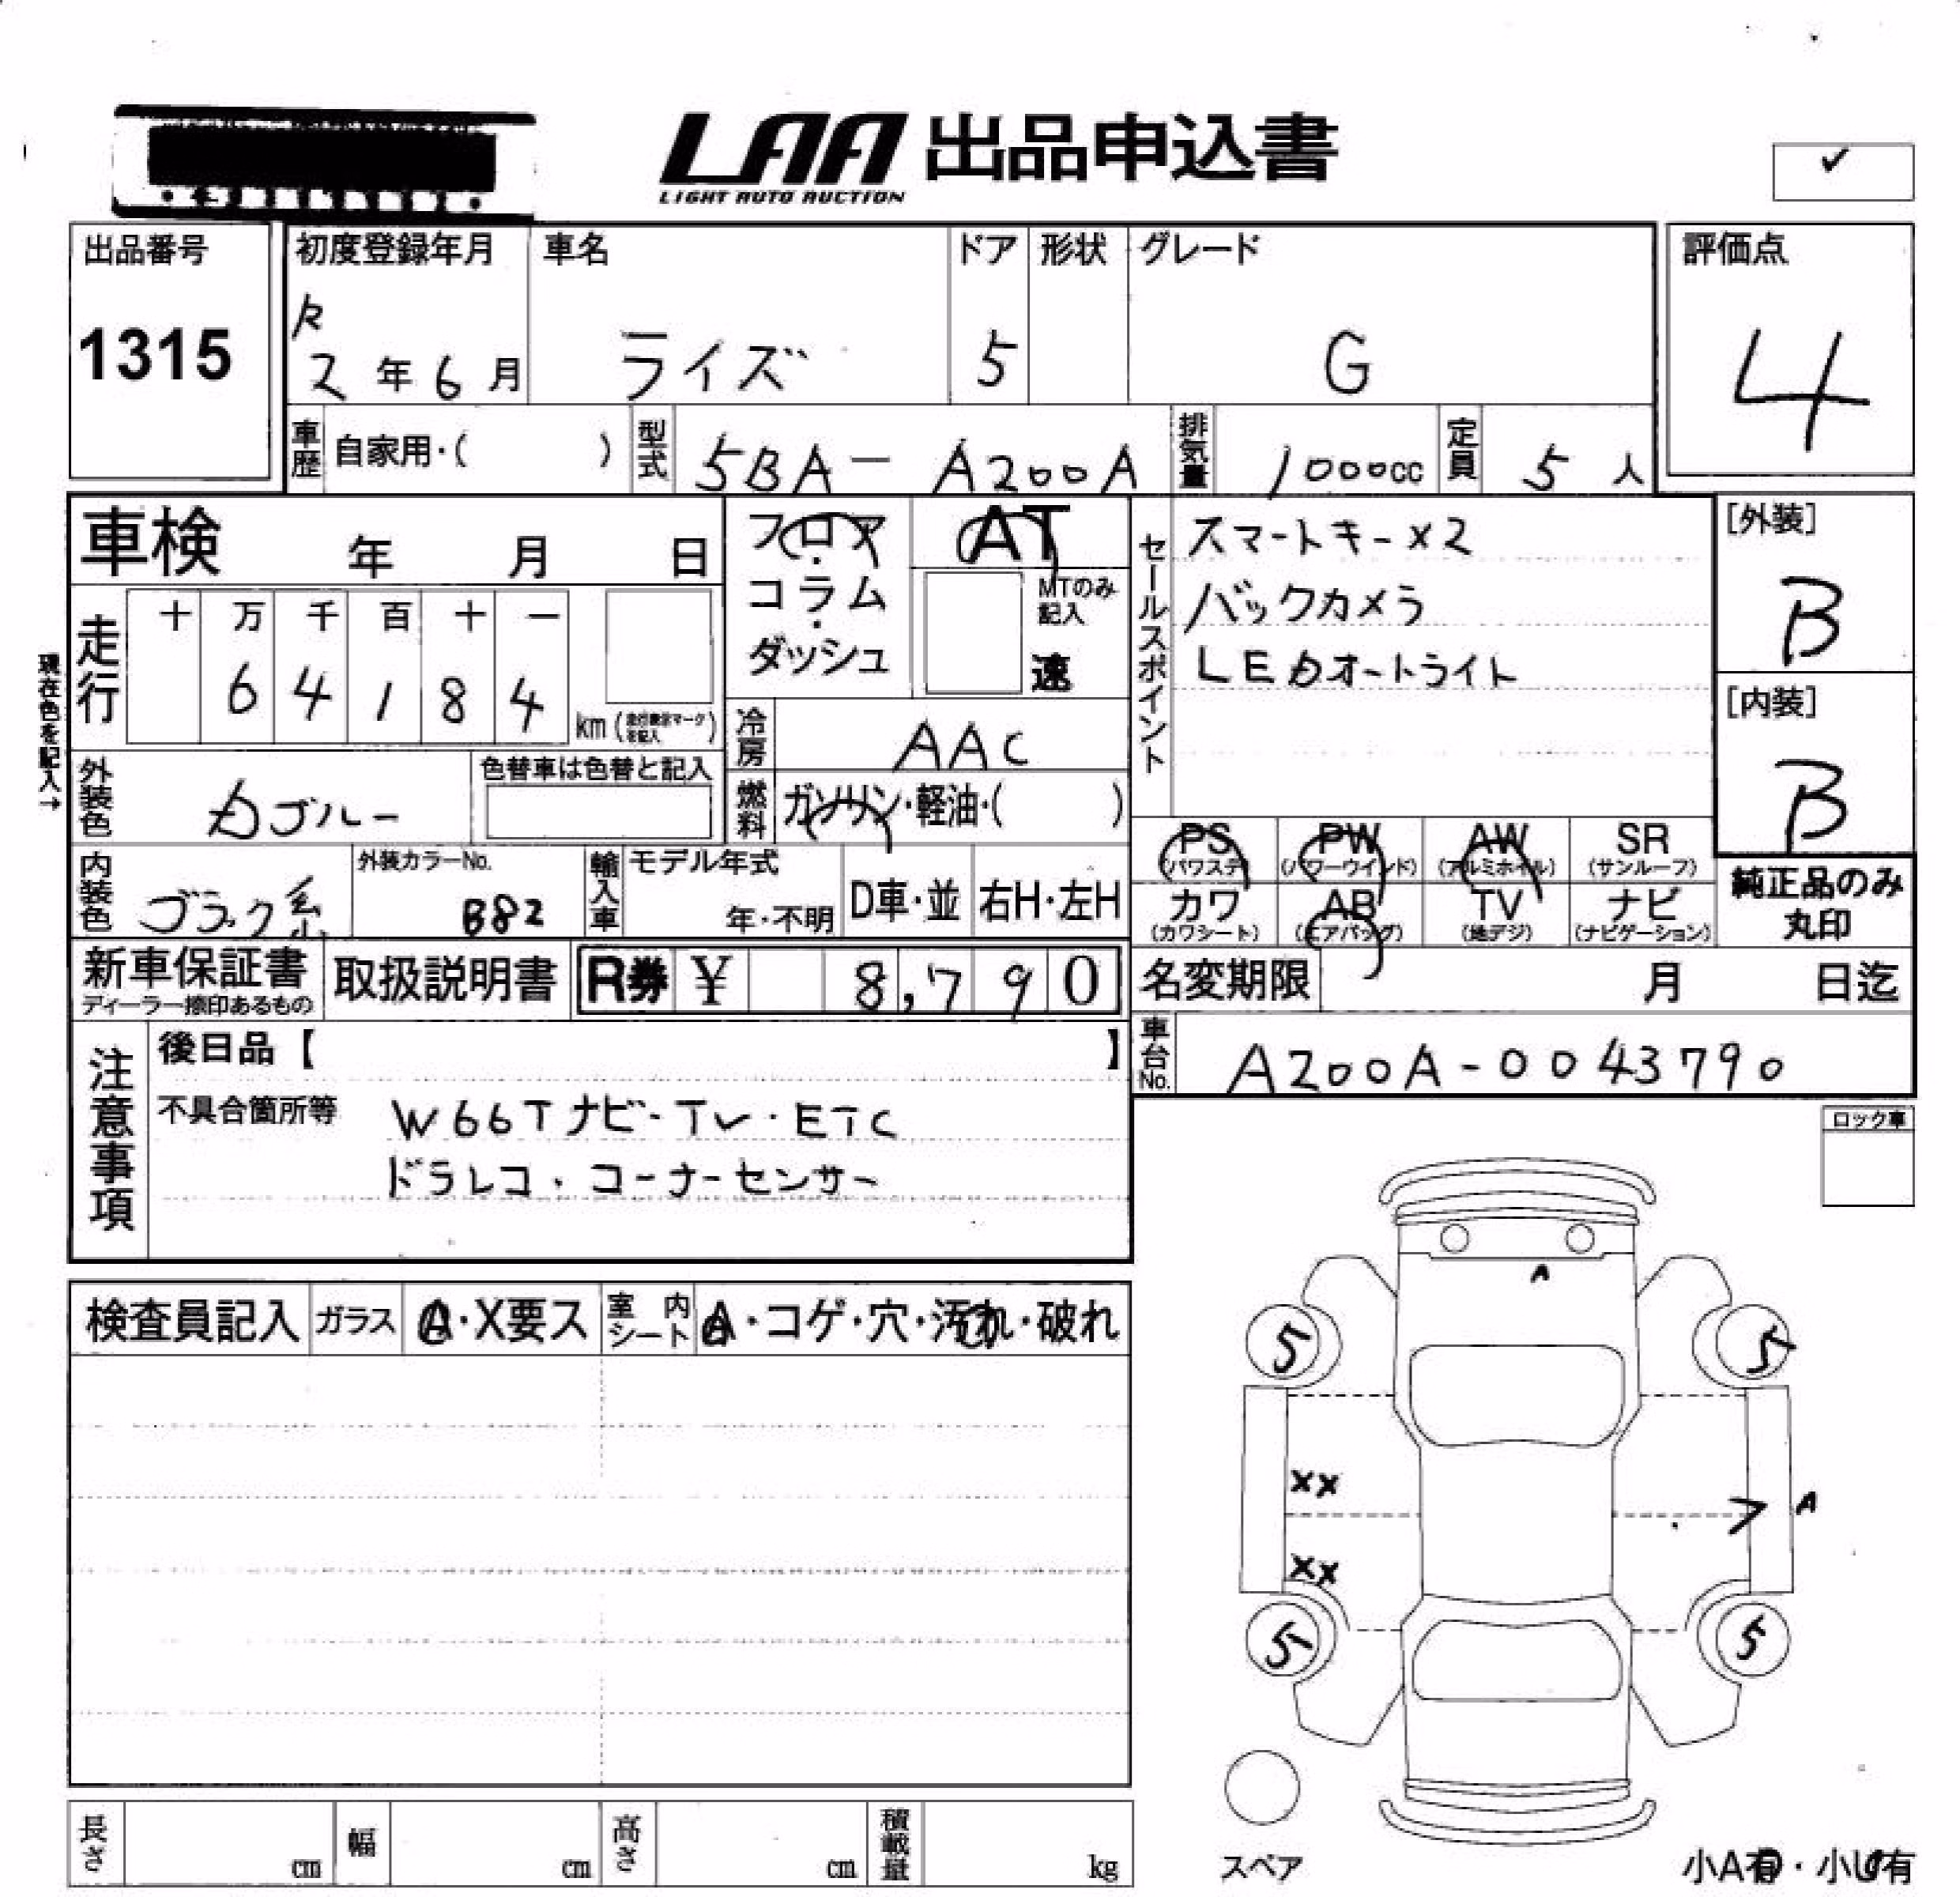 LAA 出品申込書
LIGHT AUTO AUCTION
✓
出品番号
1315
初度登録年月
R
2年6月
車名
ライズ
ドア
5
形状
グレード
G
評価点
4
車歴 自家用・( )
型式 5BA-A200A
排気量 1000cc
定員 5人
車検 年 月 日
フロア・コラム・ダッシュ
AT
MTのみ記入
速
セールスポイント
スマートキー×2
バックカメラ
LEDオートライト
[外装]
B
[内装]
B
現在色を記入→
走行
十 万 千 百 十 一
6 4 1 8 4
km (走行表示マークを記入)
冷房 AAC
燃料 ガソリン・軽油・( )
外装色
色替車は色替と記入
PS (パワステ)
PW (パワーウインド)
AW (アルミホイル)
SR (サンルーフ)
カワ (カワシート)
AB (エアバッグ)
TV (地デジ)
ナビ (ナビゲーション)
純正品のみ丸印
内装色 ブラック系
外装カラーNo. B82
輸入車 モデル年式 年・不明
D車・並
右H・左H
新車保証書
ディーラー捺印あるもの
取扱説明書
R券 ¥ 8,790
名変期限 月 日迄
車台No. A200A-0043790
注意事項
後日品【 】
不具合箇所等
W66Tナビ・TV・ETC
ドラレコ・コーナーセンサー
ロック車
検査員記入 ガラス A・X要ス 室内シート A・コゲ・穴・汚れ・破れ
A
5 5
XX
A
XX
5 5
スペア
小A有・小U有
長さ cm
幅 cm
高さ cm
積載量 kg